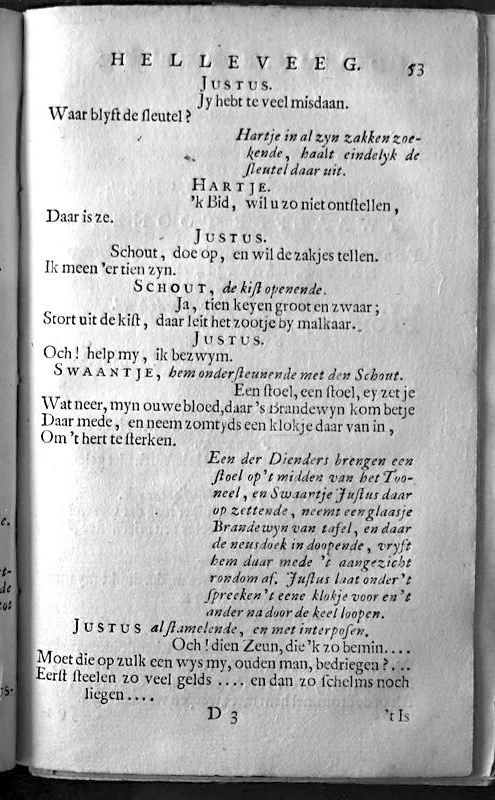 HELLEVEEG. 53
JUSTUS.
Jy hebt te veel misdaan.
Waar blyft de sleutel?
Hartje in al zyn zakken zoe-
kende, haalt eindelyk de
sleutel daar uit.
HARTJE.
'k Bid, wil u zo niet ontstellen,
Daar is ze.
JUSTUS.
Schout, doe op, en wil de zakjes tellen.
Ik meen 'er tien zyn.
SCHOUT, de kist openende.
Ja, tien keyen groot en zwaar;
Stort uit de kist, daar leit het zootje by malkaar.
JUSTUS.
Och! help my, ik bezwym.
SWAANTJE, hem ondersteunende met den Schout.
Een stoel, een stoel, ey zet je
Wat neer, myn ouwe bloed, daar 's Brandewyn kom betje
Daar mede, en neem zomtyds een klokje daar van in,
Om 't hert te sterken.
Een der Dienders brengen een
stoel op 't midden van het Too-
neel, en Swaartje Justus daar
op zettende, neemt een glaasje
Brandewyn van tafel, en daar
de neusdoek in doopende, vryft
hem daar mede 't aangezicht
rondom af. Justus laat onder 't
spreeken 't eene klokje voor en 't
ander na door de keel loopen.
JUSTUS alstamelende, en met interposen.
Och! dien Zeun, die 'k zo bemin....
Moet die op zulk een wys my, ouden man, bedriegen?...
Eerst steelen zo veel gelds .... en dan zo schelms noch
liegen....
D 3 't Is
e.
t-
de
tot
ys-